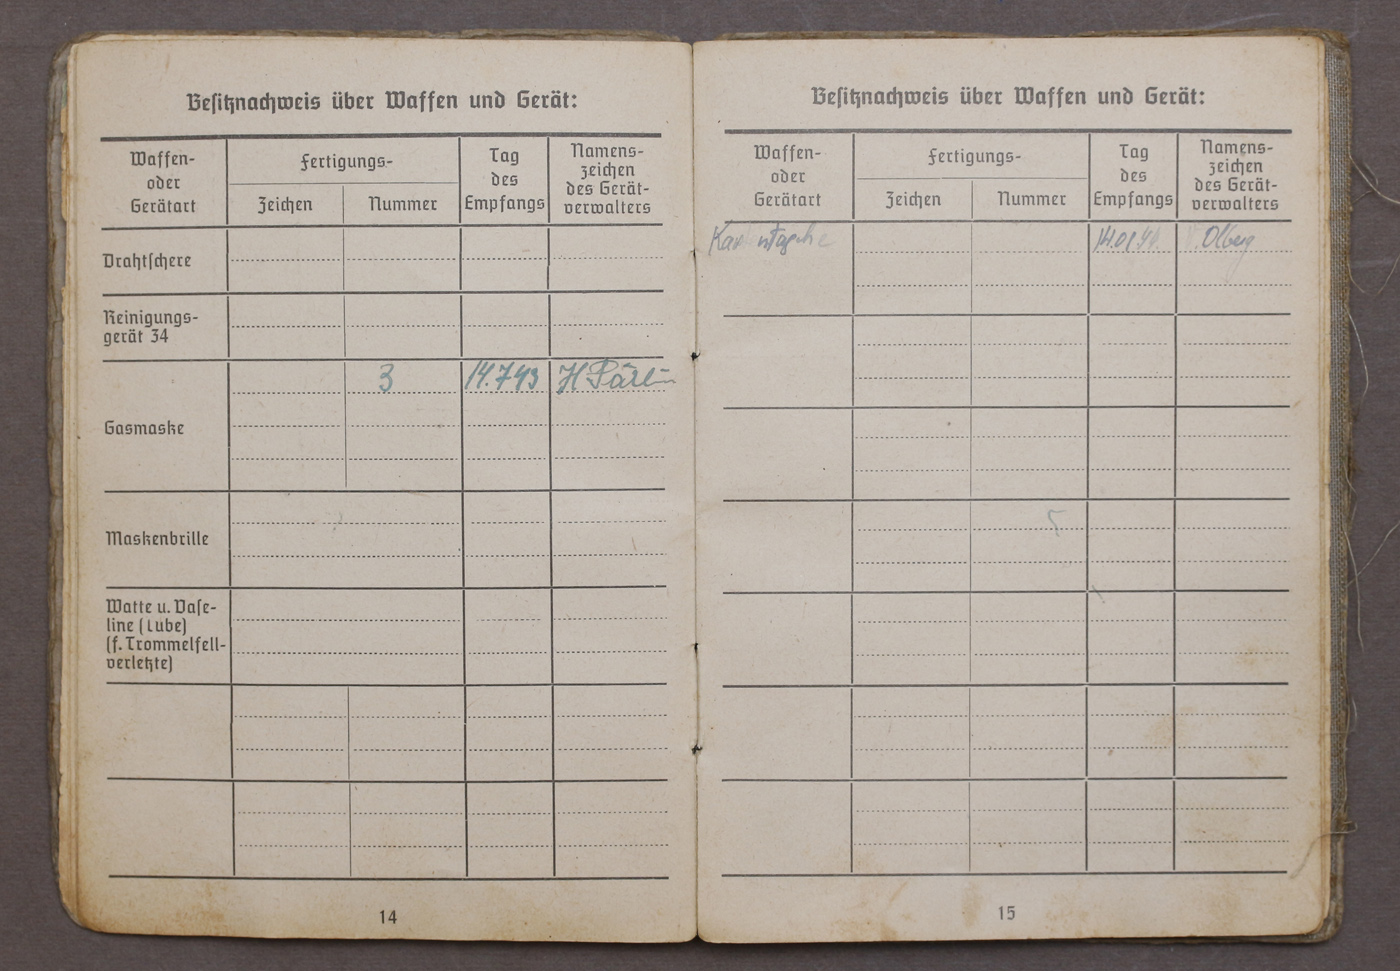 Besitznachweis über Waffen und Gerät:
Waffen-
oder
Gerätart
Fertigungs-
Zeichen
Nummer
Tag
des
Empfangs
Namens-
zeichen
des Gerät-
verwalters
Drahtschere
Reinigungs-
gerät 34
Gasmaske
3
14.7.43
Maskenbrille
Watte u. Vase-
line (Tube)
(f. Trommelfell-
verletzte)
14
Besitznachweis über Waffen und Gerät:
Waffen-
oder
Gerätart
Fertigungs-
Zeichen
Nummer
Tag
des
Empfangs
Namens-
zeichen
des Gerät-
verwalters
Kartentasche
15